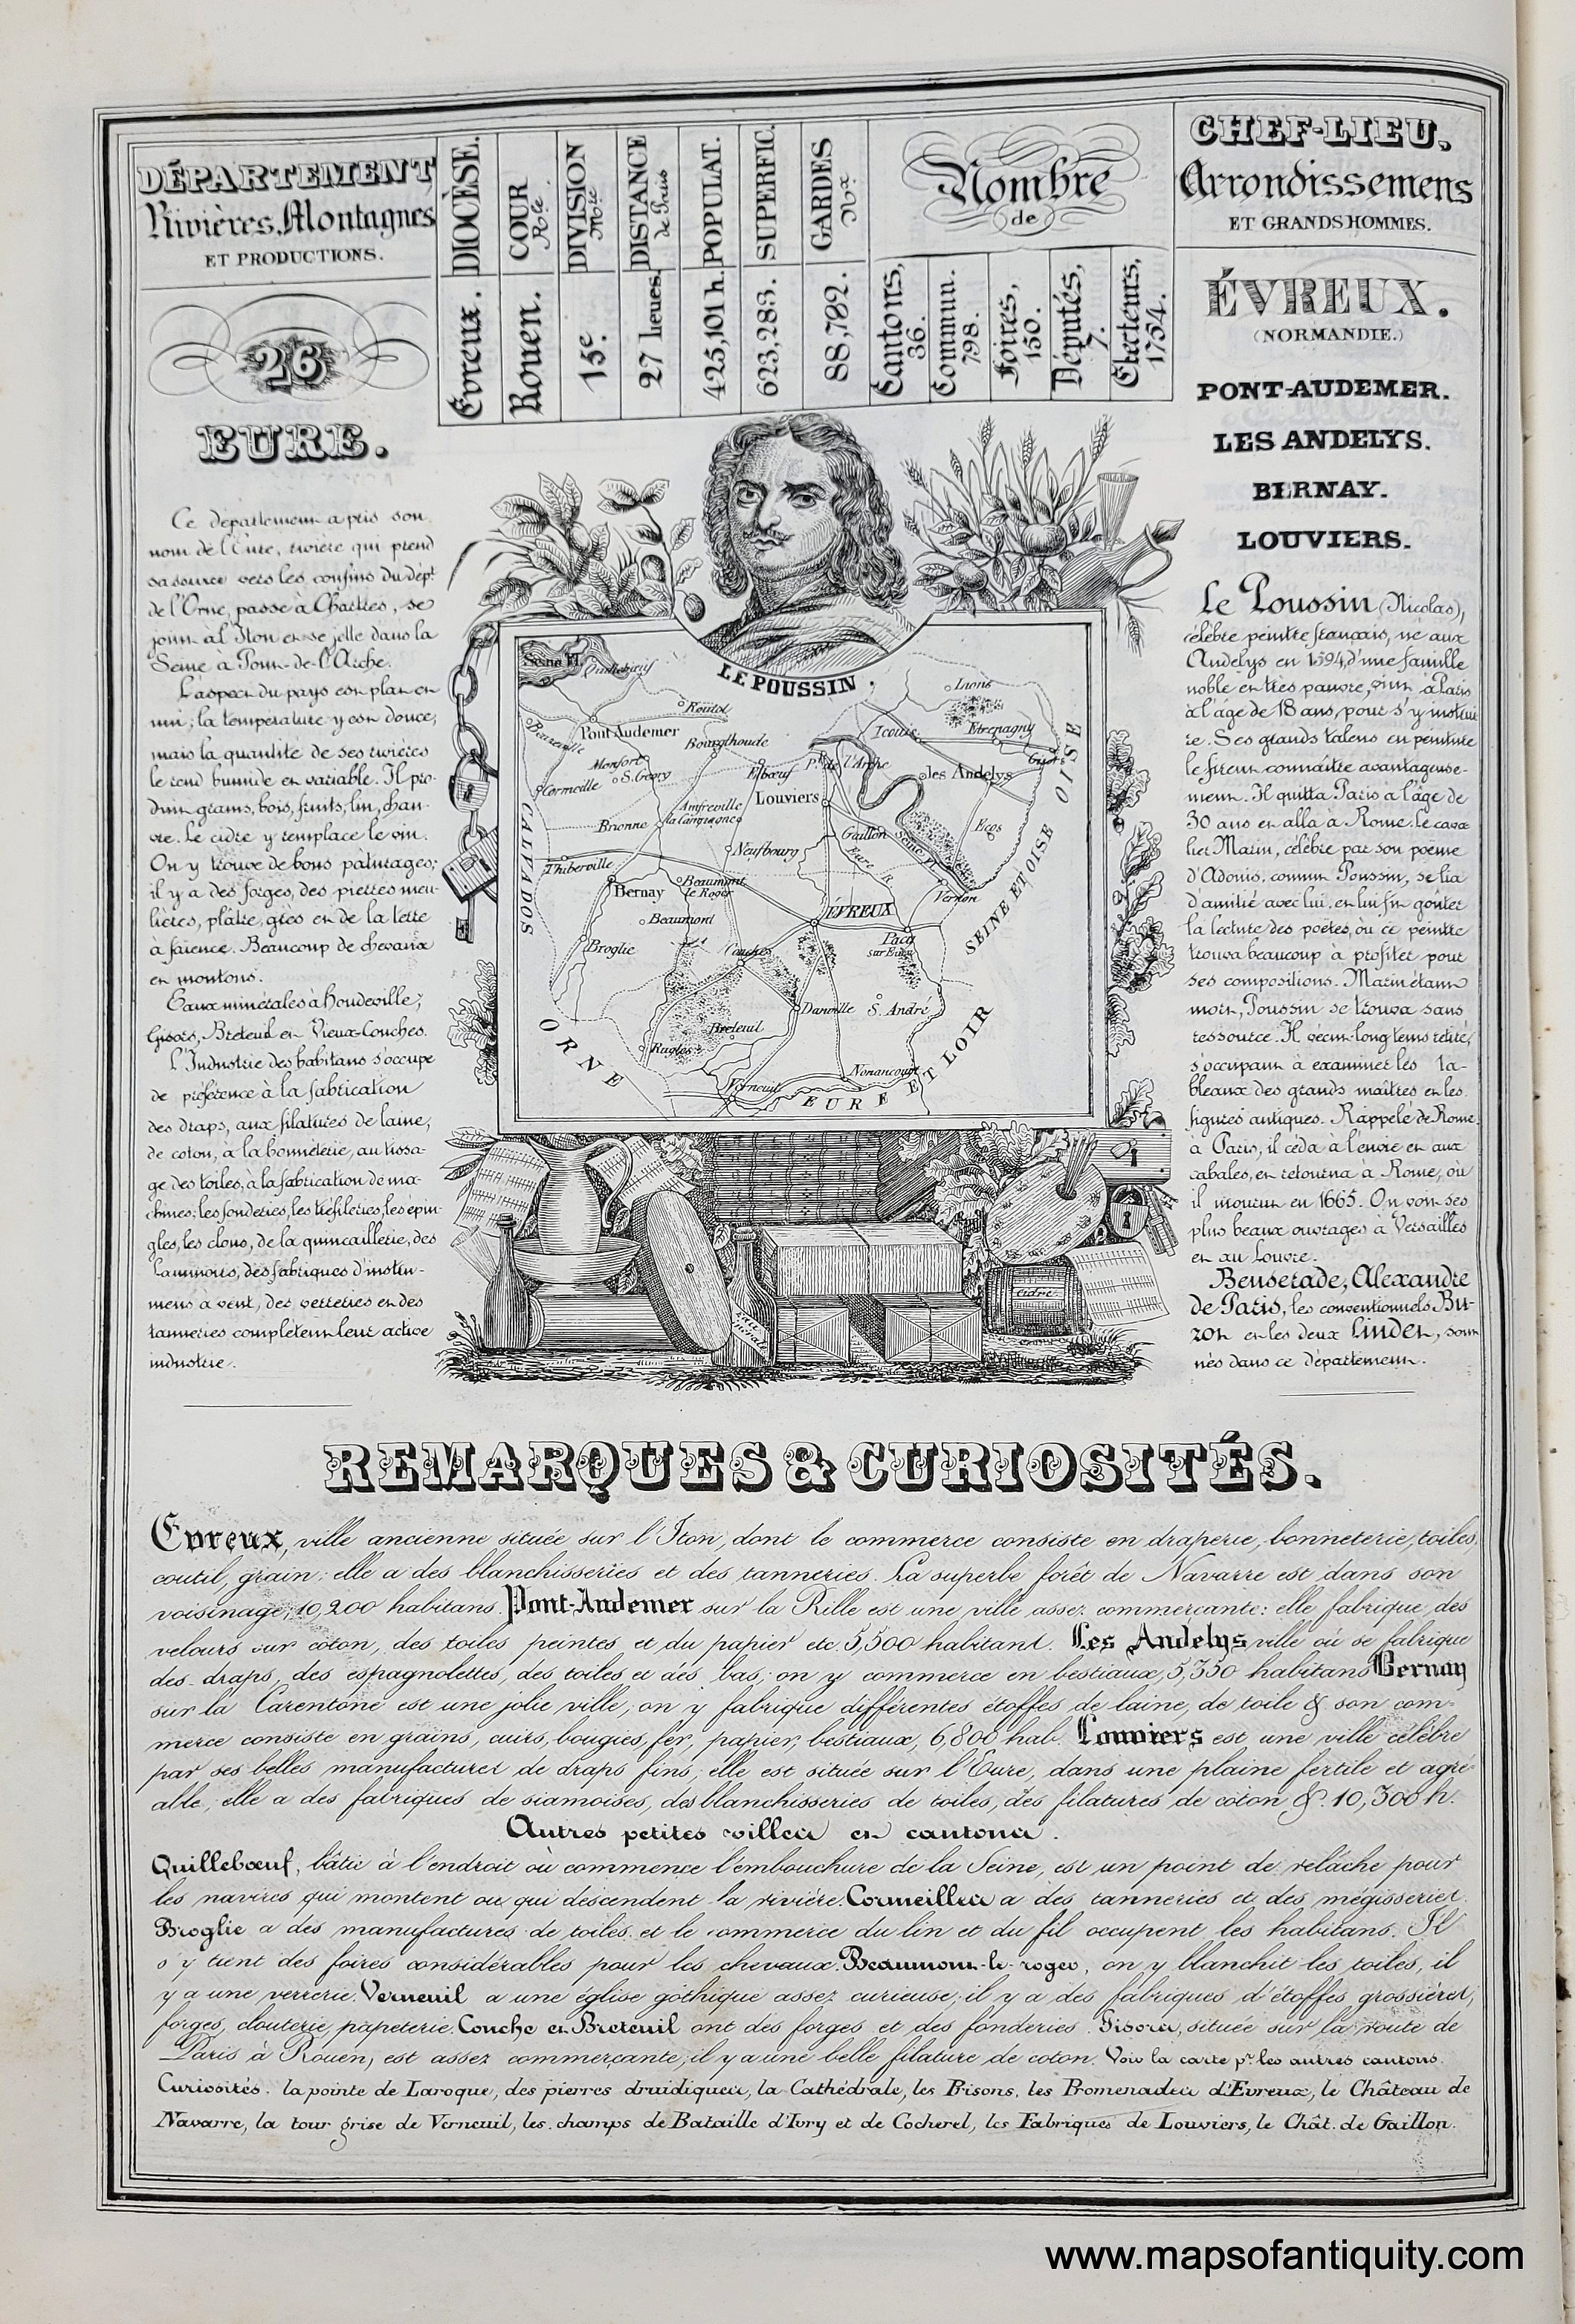 DÉPARTEMENT
Rivières, Montagnes
ET PRODUCTIONS.
DIOCÈSE.
Évreux.
COUR Rle
Rouen.
DIVISION Mre
15e.
DISTANCE de Paris
27 lieues.
POPULAT.
425,101 h.
SUPERFIC.
623,283.
GARDES Nx
88,782.
Nombre
de
Cantons, 36.
Commun. 798.
Foires, 150.
Députés, 7.
Electeurs, 1754.
CHEF-LIEU.
Arrondissemens
ET GRANDS HOMMES.
26
EURE.
Ce département a pris son
nom de l'Eure, rivière qui prend
sa source vers les confins du dépt
de l'Orne, passe à Chartres, se
joint à l'Iton et se jette dans la
Seine à Pont-de-l'Arche.
L'aspect du pays est plat et
uni; la température y est douce;
mais la quantité de ses rivières
le rend humide et variable. Il pro-
duit grains, bois, fruits, lin, chan-
vre. Le cidre y remplace le vin.
On y trouve de bons pâturages;
il y a des forges, des pierres meu-
lières, plâtre, grès et de la terre
à faience. Beaucoup de chevaux
et moutons.
Eaux minérales à Houdeville,
Gisors, Breteuil et Vieux-Conches.
L'Industrie des habitans s'occupe
de préférence à la fabrication
des draps, aux filatures de laine,
de coton, à la bonneterie, au tissa-
ge des toiles, à la fabrication de ma-
chines; les fonderies, les tréfileries, les épin-
gles, les clous, de la quincaillerie, des
laminoirs, des fabriques d'instru-
mens à vent, des verreries et des
tanneries complètent leur active
industrie.
LE POUSSIN.
Seine M.
Quillebeuf
Routot
Lions
Pont Audemer
Beuzeville
Bourgthoude
Icouis
Etrepagny
Gisors
Monfort
S. Georg
Elbœuf
Pt de l'Arche
les Andelys
Cormeille
Louviers
Amfreville
la campagne
Brionne
Gaillon
Ecos
Neufbourg
Eure R.
Seine Fl.
Thiberville
Bernay
Beaumont
le Roger
Vernon
Beaumont
ÉVREUX
Broglie
Conches
Pacy
sur Eure
Damville
S. André
Breteuil
Rugles
Verneuil
Nonancourt
CALVADOS
OISE
SEINE ET OISE
ORNE
EURE ET LOIR
Cidre
EAU
ÉVREUX.
(NORMANDIE.)
PONT-AUDEMER.
LES ANDELYS.
BERNAY.
LOUVIERS.
Le Poussin (Nicolas),
célèbre peintre français, né aux
Andelys en 1594, d'une famille
noble et très pauvre, vint à Paris
à l'âge de 18 ans, pour s'y instrui
re. Ses grands talens en peinture
le firent connaître avantageuse-
ment. Il quitta Paris à l'âge de
30 ans et alla à Rome. Le cava
lier Marin, célèbre par son poème
d'Adonis, connut Poussin, se lia
d'amitié avec lui, et lui fit goûter
la lecture des poëtes, où ce peintre
trouva beaucoup à profiter pour
ses compositions. Marin étant
mort, Poussin se trouva sans
ressource. Il vécut long tems retiré,
s'occupant à examiner les ta-
bleaux des grands maîtres et les
figures antiques. Rappelé de Rome
à Paris, il céda à l'envie et aux
cabales, et retourna à Rome, où
il mourut en 1665. On voit ses
plus beaux ouvrages à Versailles
et au Louvre.
Benserade, Alexandre
de Paris, les conventionnels Bu-
zot et les deux Lindet, sont
nés dans ce département.
REMARQUES & CURIOSITÉS.
Evreux, ville ancienne située sur l'Iton, dont le commerce consiste en draperie, bonneterie, toiles,
coutil, grain; elle a des blanchisseries et des tanneries. La superbe forêt de Navarre est dans son
voisinage; 10,200 habitans. Pont-Audemer sur la Rille est une ville assez commerçante: elle fabrique des
velours sur coton, des toiles peintes et du papier etc. 5,500 habitant. Les Andelys ville où se fabrique
des draps, des espagnolettes, des toiles et des bas; on y commerce en bestiaux, 5,350 habitans Bernay
sur la Carentone est une jolie ville; on y fabrique différentes étoffes de laine, de toile & son com-
merce consiste en grains, cuirs, bougies, fer, papier, bestiaux, 6,800 hab. Louviers est une ville célèbre
par ses belles manufactures de draps fins; elle est située sur l'Eure, dans une plaine fertile et agré-
able; elle a des fabriques de siamoises, des blanchisseries de toiles, des filatures de coton &. 10,300 h.
Autres petites villes et cantons.
Quillebœuf, bâtie à l'endroit où commence l'embouchure de la Seine, est un point de relâche pour
les navires qui montent ou qui descendent la rivière. Cormeilles a des tanneries et des mégisseries.
Broglie a des manufactures de toiles et le commerce du lin et du fil occupent les habitans. Il
s'y tient des foires considérables pour les chevaux. Beaumont-le-roger, on y blanchit les toiles, il
y a une verrerie. Verneuil a une église gothique assez curieuse; il y a des fabriques d'étoffes grossières,
forges, clouterie, papeterie. Conche et Breteuil ont des forges et des fonderies. Gisors, située sur la route de
Paris à Rouen, est assez commerçante, il y a une belle filature de coton. Voir la carte pr les autres cantons.
Curiosités. la pointe de Laroque, des pierres druidiques, la Cathédrale, les Prisons, les Promenades d'Evreux, le Château de
Navarre, la tour grise de Verneuil, les champs de Bataille d'Ivry et de Cocherel, les Fabriques de Louviers, le Chât. de Gaillon.
www.mapsofantiquity.com